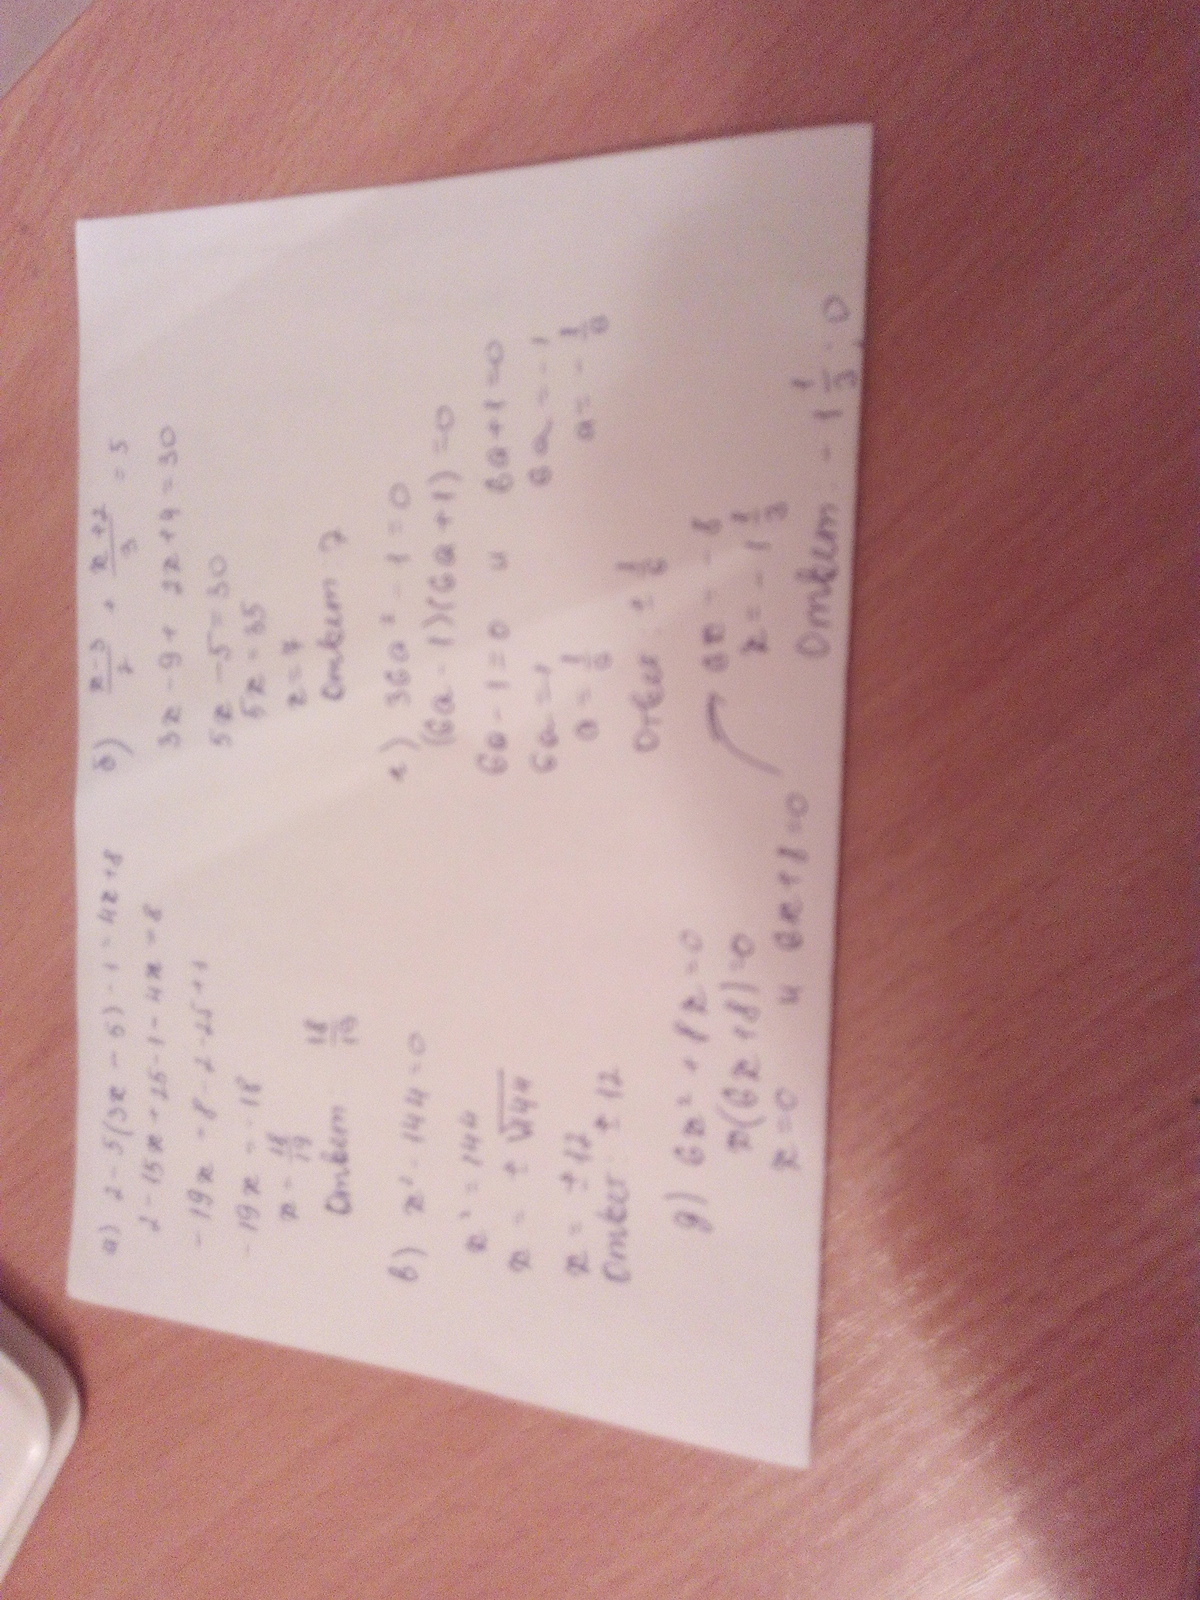 а) 2 - 5(3x - 5) - 1 = 4x + 8
2 - 15x + 25 - 1 - 4x = 8
- 19x = 8 - 2 - 25 + 1
- 19x = - 18
x = 18/19
Ответ 18/19
б) (x-3)/2 + (x+2)/3 = 5
3x - 9 + 2x + 4 = 30
5x - 5 = 30
5x = 35
x = 7
Ответ 7
в) x² - 144 = 0
x² = 144
x = ± √144
x = ± 12
Ответ: ± 12
г) 36a² - 1 = 0
(6a - 1)(6a + 1) = 0
6a - 1 = 0 и 6a + 1 = 0
6a = 1 6a = - 1
a = 1/6 a = - 1/6
Ответ: ± 1/6
д) 6x² + 8x = 0
x(6x + 8) = 0
x = 0 и 6x + 8 = 0
6x = - 8
x = - 1 1/3
Ответ: - 1 1/3; 0